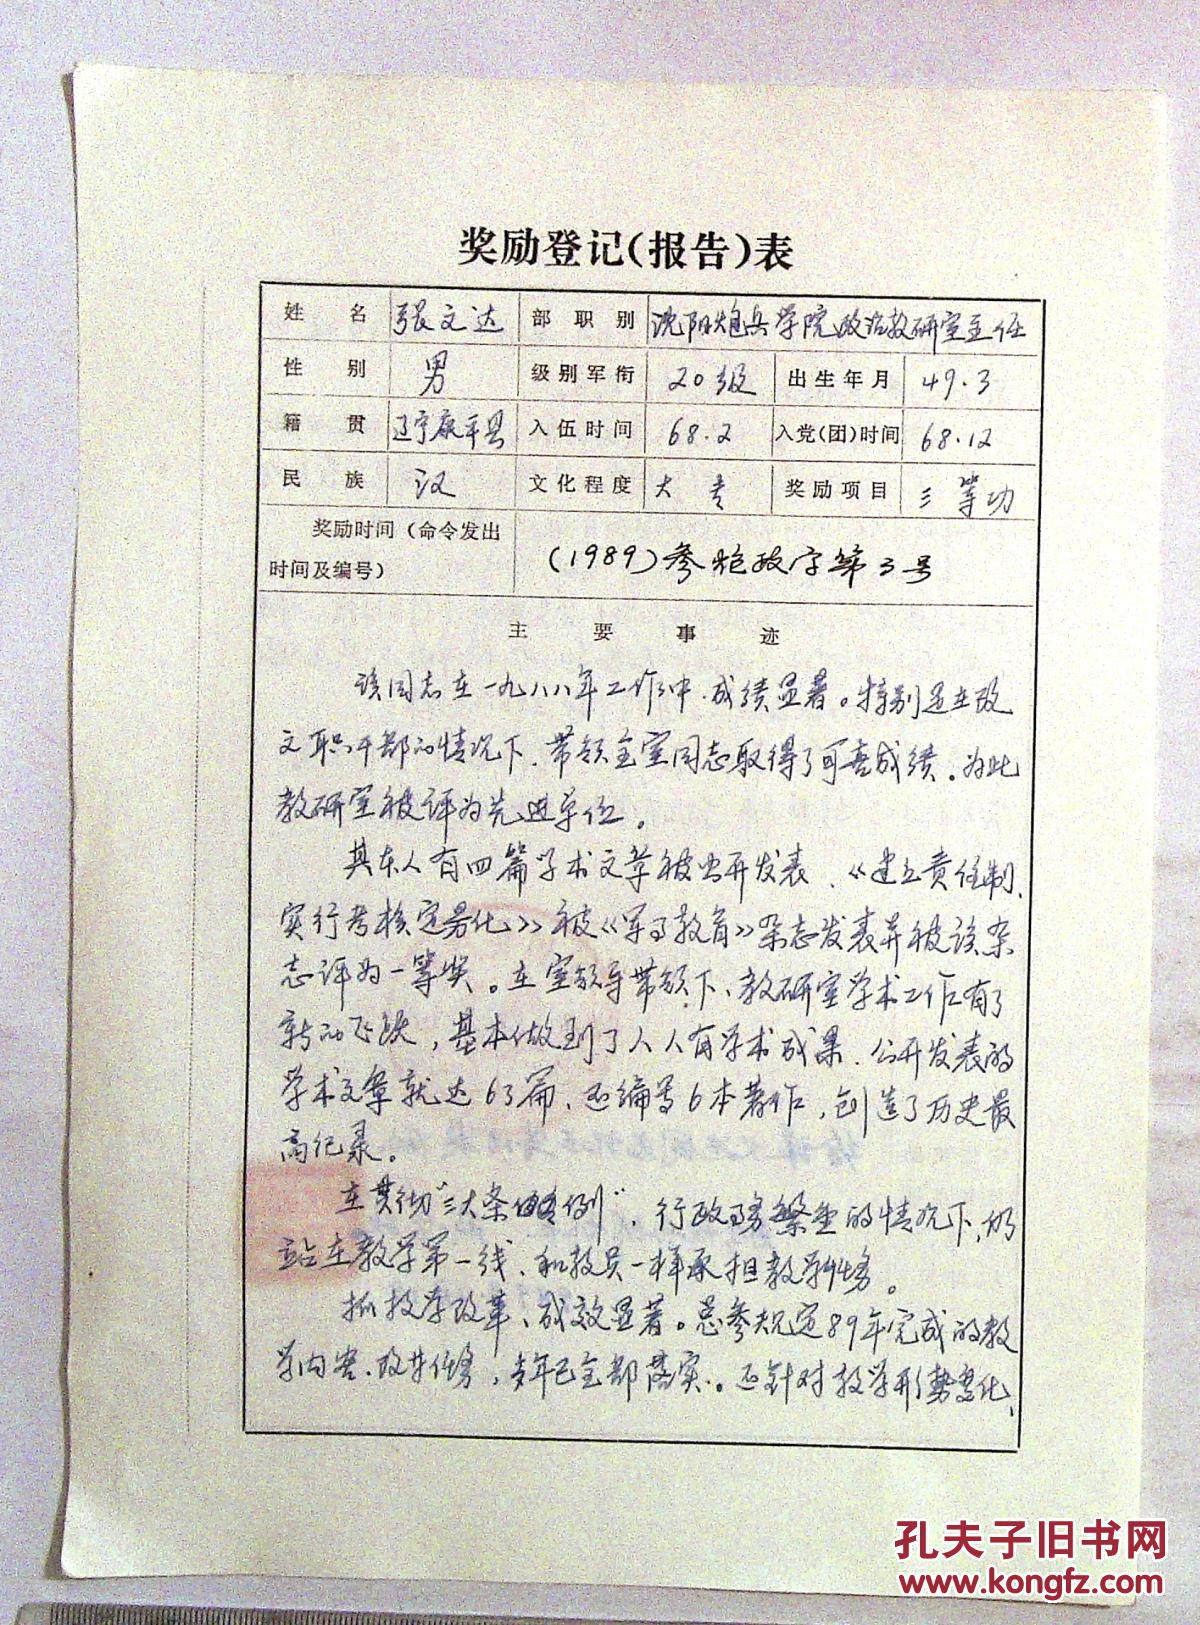 奖励登记(报告)表
姓 名 张文达 部职别 沈阳炮兵学院政治教研室主任
性 别 男 级别军衔 20级 出生年月 49.3
籍 贯 辽宁康平县 入伍时间 68.2 入党(团)时间 68.12
民 族 汉 文化程度 大专 奖励项目 三等功
奖励时间(命令发出
时间及编号) (1989)参炮政字第3号
主要事迹
该同志在一九八八年工作中.成绩显著。特别是在改
文职干部的情况下、带领全室同志取得了可喜成绩。为此
教研室被评为先进单位。
其本人有四篇学术文章被公开发表、《建立责任制、
实行考核定量化》被《军事教育》杂志发表并被该杂
志评为一等奖。在室领导带领下、教研室学术工作有了
新的飞跃，基本做到了人人有学术成果、公开发表的
学术文章就达63篇、还编写6本著作，创造了历史最
高纪录。
在贯彻"三大条例"、行政事务繁重的情况下，仍
站在教学第一线、和教员一样承担教学任务。
抓教学改革、成效显著。总参规定89年完成的教
学内容.改革任务，当年已全部落实。还针对教学形势变化、
孔夫子旧书网
www.kongfz.com